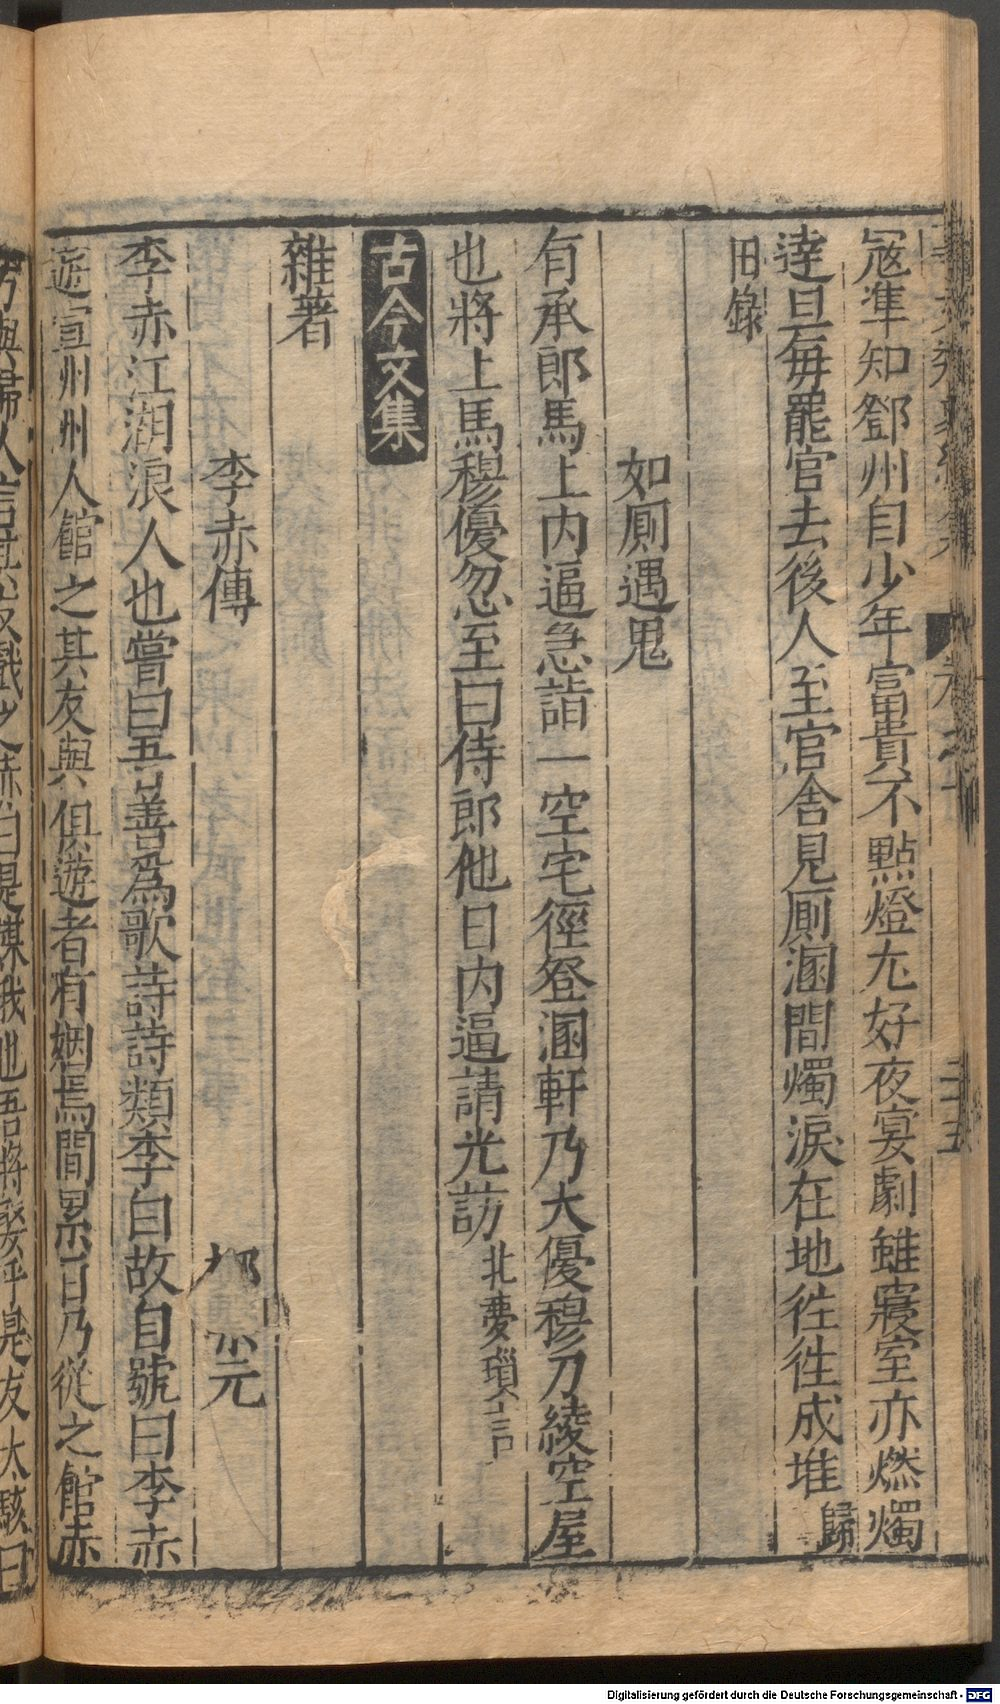 冦準知鄧州自少年富貴不點燈尤好夜宴劇雖寢室亦燃燭
達旦每罷官去後人至官舍見厠溷間燭淚在地徃徃成堆歸
田錄
如厠遇鬼
有承郎馬上内逼急詣一空宅徑登溷軒乃大優穆刀綾空屋
也將上馬穆優忽至曰侍郎他日内逼請光訪北夢瑣言
古今文集
雜著
李赤傳
元
李赤江湖浪人也嘗曰吾善爲歌詩詩類李白故自號曰李赤
遊宣州州人館之其友與俱遊者有姻焉間累日乃從之館赤
方與婦人言其友戲之赤曰是媒我也吾將娶乎是友大駭曰
Digitalisierung gefördert durch die Deutsche Forschungsgemeinschaft - DFG